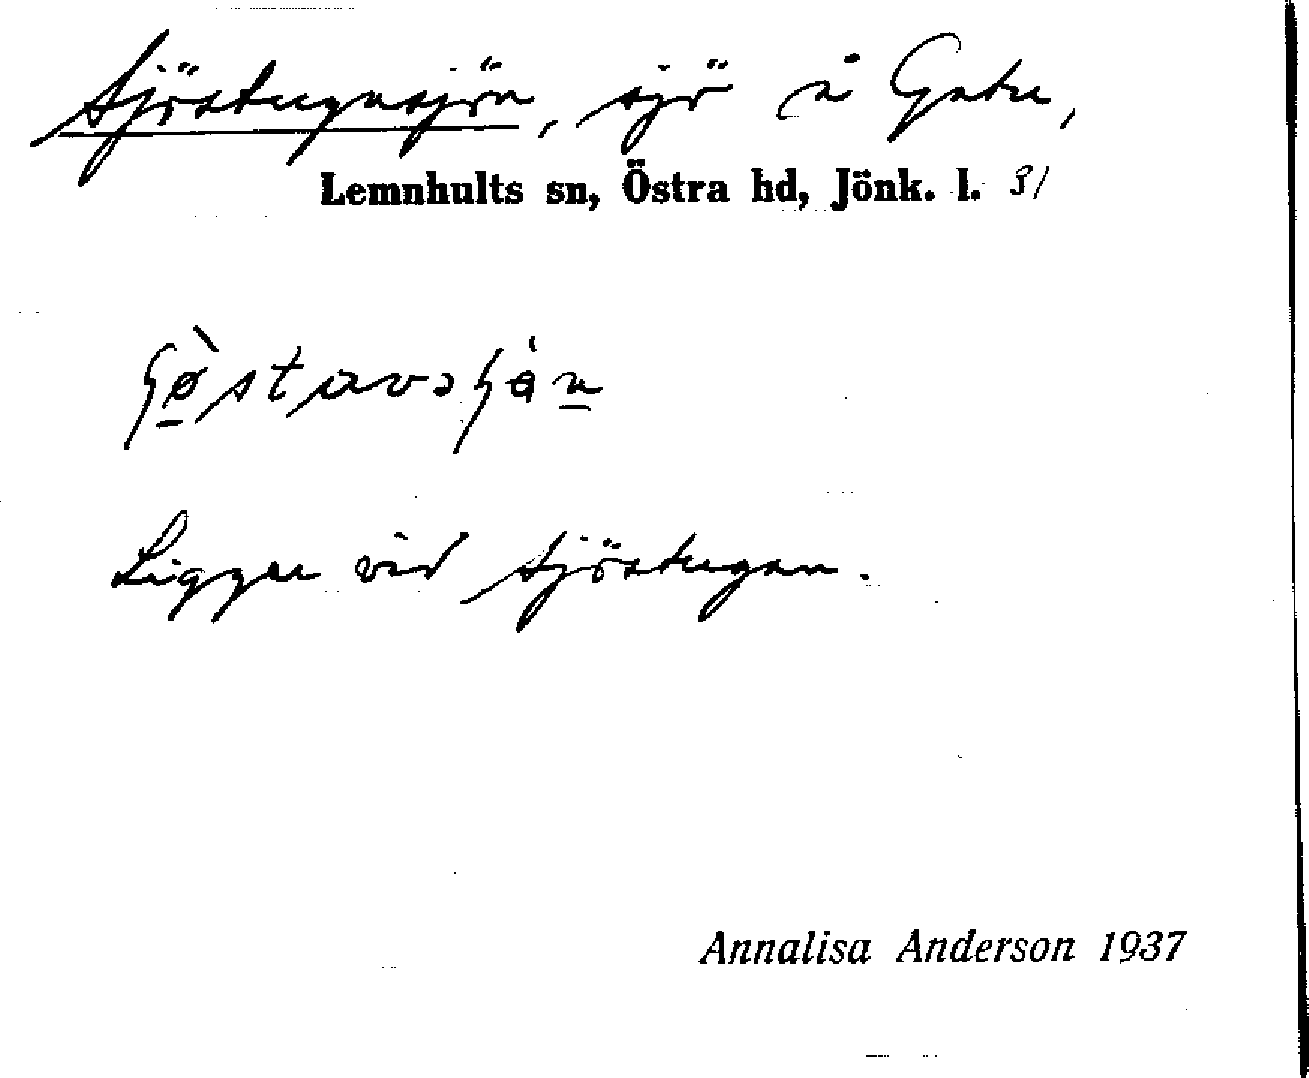 Sjöstugusjön, sjö å Gatu,
Lemnhults sn, Östra hd, Jönk. l. 31
Ligger vid Sjöstugan.
Annalisa Anderson 1937